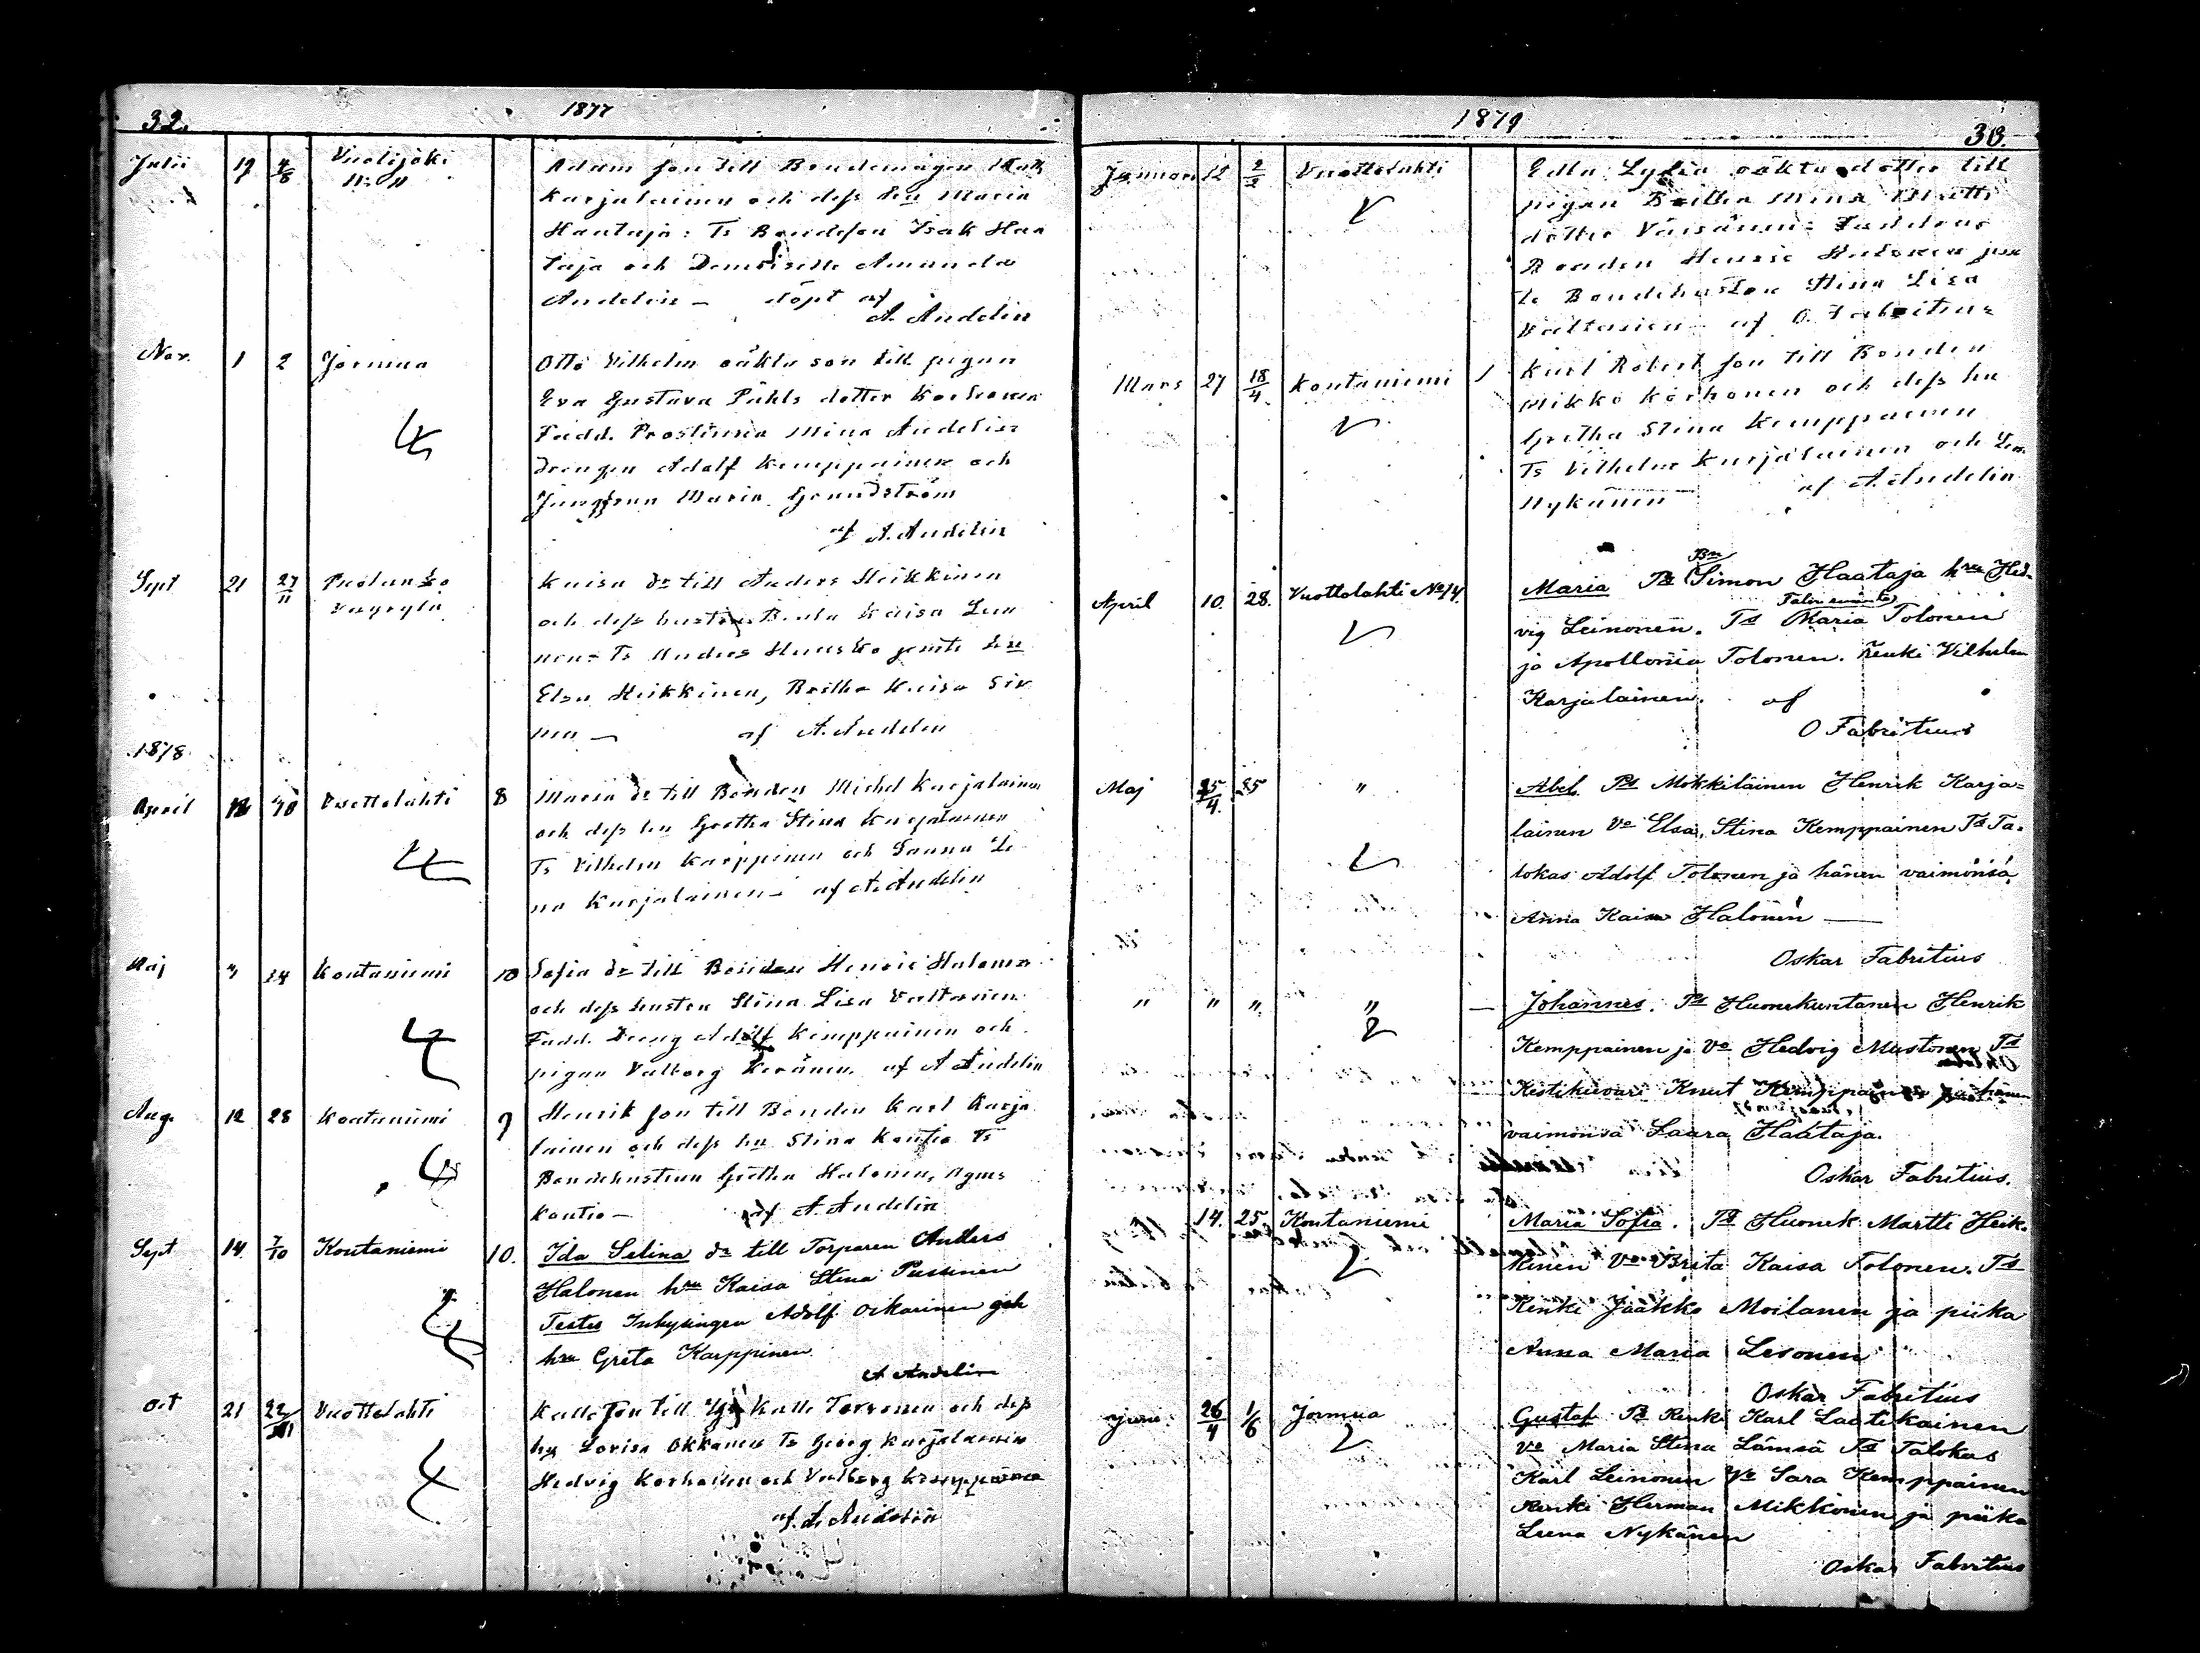 32.
1877
Julii 19 4/8 Vuolijoki
N:o 11
Adam son till Bondemågen
Karjalainen och dess hu Maria
Haataja: Ts Bondeson Isak Haa
taja och Demoiselle Amanda
Andelin — döpt af
A. Andelin
Nov. 1 2 Jormua Otto Vilhelm oäkta son till pigan
Eva Gustava Påhls dotter Korhonen
Fadd. Prostinna Mina Andelin
drengen Adolf Kemppainen och
Jungfrun Maria Grundström
af A. Andelin
Sept 21 27/11
Kaisa dr till Anders Heikkinen
och dess hustru Beata Kaisa Leu
nen = Ts Anders jemte hu
Elsa Heikkinen, Britha Kaisa
nen — af A. Andelin
1878
April Vuottolahti 8 Maria dr till Bonden Michel Karjalainen
och dess hu Gretha Stina Karjalainen
Ts Vilhelm Karppinen och Sanna Le
na Karjalainen — af A. Andelin
Maj " 24 Koutaniemi 10 Sofia dr till Bonden Henric Halonen
och dess hustru Stina Lisa Valtanen
Fadd. Dreng Adolf Kemppainen och
pigan Valborg Keränen. af A Andelin
Aug. 12 28 Koutaniemi 9 Henrik son till Bonden Karl Karja
lainen och dess hu Stina Kontio Ts
Bondehustrun Gretha Halonen, Agnes
Kontio — af A. Andelin
Sept 14. 7/10 Koutaniemi 10. Ida Selina dr till Torparen Anders
Halonen hu Kaisa Stina Pussinen
Testes Inhysingen Adolf Oikarinen och
hu Greta Karppinen
A Andelin
Oct 21 Vuottolahti Kalle son till Kalle Torvonen och dess
hu Lovisa Okkonen Ts Georg Karjalainen
Hedvig Korhonen och Valborg Kemppainen
af A. Andelin
1879
33.
Januari 12 2/2 Vuottolahti Edla Lydia oäkta dotter till
pigan Britha Mina Matts
dotter Väisänen = Faddrar
Bonden Henric Halonen jem
te Bondehustru Stina Lisa
Valtanen — af O. Fabritius
Mars 27 18/4 Koutaniemi 1 Karl Robert son till Bonden
Mikko Korhonen och dess hu
Gretha Stina Kemppainen
Ts Vilhelm Karjalainen och Lena
Nykänen — af A. Andelin
April 10. 28. Vuottolahti No 14. Maria Ps Bn Simon Haataja hu Hed-
vig Leinonen. Ts Talon emäntä Maria Tolonen
ja Apollonia Tolonen. Renki Vilhelm
Karjalainen. af
O Fabritius
Maj 25/4 25 " Abel. Ps Mökkiläinen Henrik Karja=
lainen Vo Elsa Stina Kemppainen Ts Ta-
lokas Adolf Tolonen ja hänen vaimonsa
Anna Kaisa Halonen —
Oskar Fabritius
" " " " — Johannes. Ps Huonekuntanen Henrik
Kemppainen ja Vo Hedvig Mustonen Ts
Kestikievari Knut Kemppainen ja hänen
vaimonsa Saara Haataja.
Oskar Fabritius.
14. 25. Koutaniemi Maria Sofia. Ps Huonek Martti Heik-
kinen Vo Brita Kaisa Tolonen. Ts
Renki Jaakko Moilanen ja piika
Anna Maria Lesonen
Oskar Fabritius
Juni. 26/4 1/6 Jormua Gustaf Ps Renki Karl Laatikainen
Vo Maria Stina Lämsä Ts Talokas
Karl Leinonen Vo Sara Kemppainen
Renki Herman Mikkonen ja piika
Leena Nykänen
Oskar Fabritius